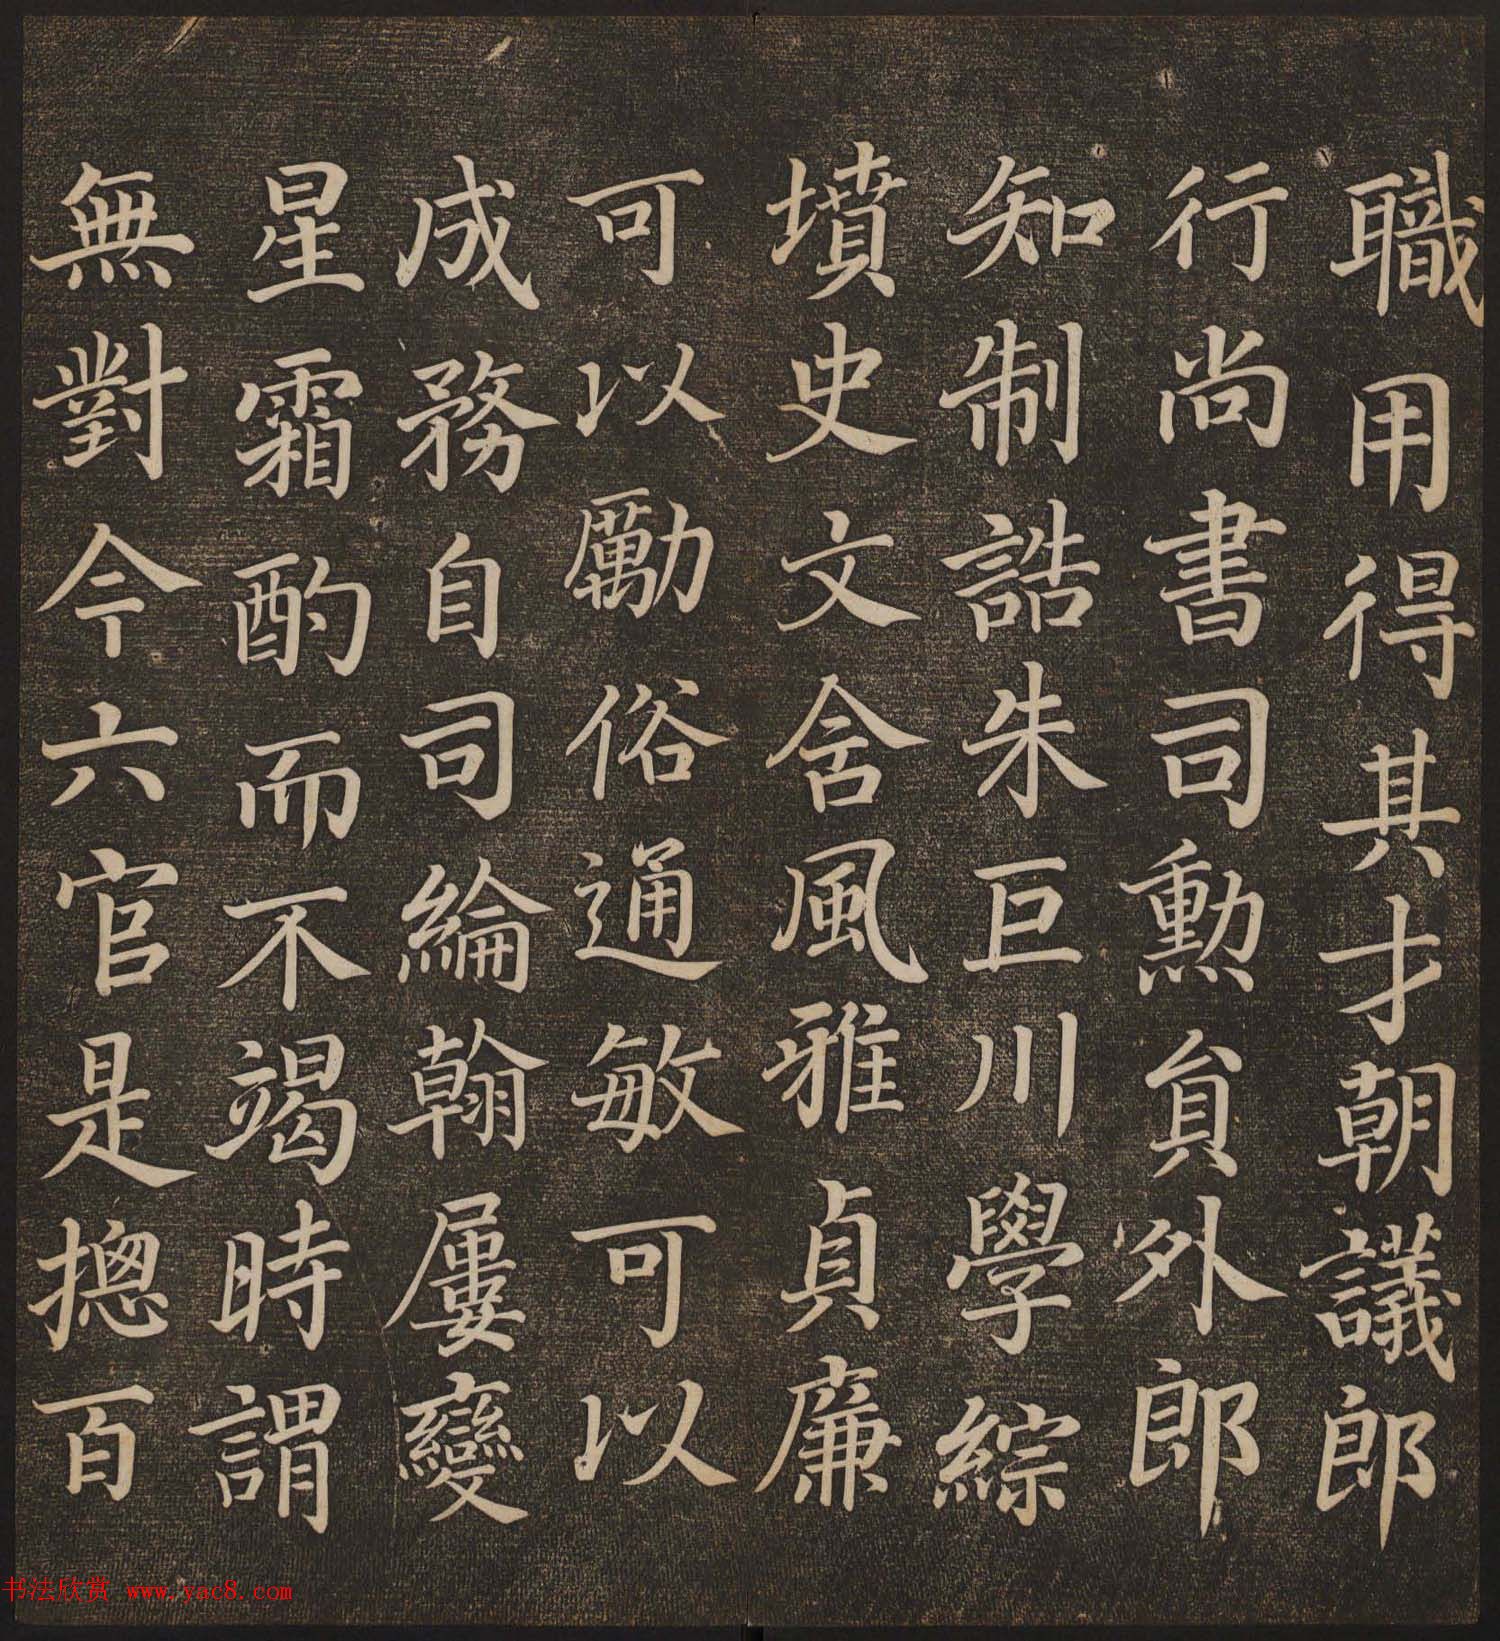 職用得其才朝議郎
行尚書司勲貟外郎
知制誥朱巨川學綜
墳史文含風雅貞廉
可以勵俗通敏可以
成務自司綸翰屢變
星霜酌而不竭時謂
無對今六官是揔百
书法欣赏 www.yac8.com